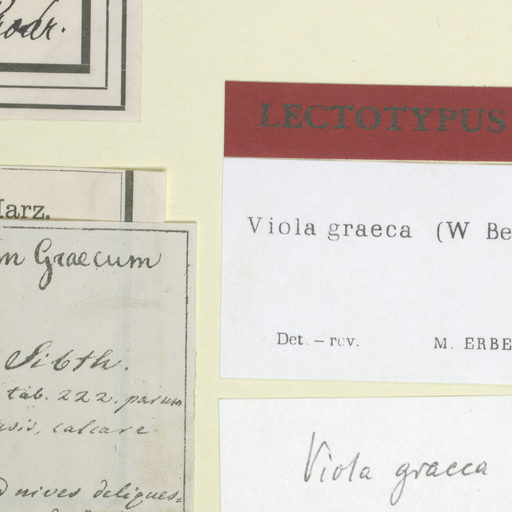 LECTOTYPUS
Viola graeca (W Be
Det. – rev. M. ERBE
Viola graeca
Harz.
m Graecum
Sibth.
tab. 222. parum
calcare
d nives deliques: